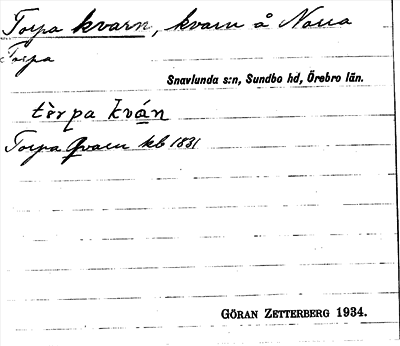 Torpa kvarn, kvarn å Norra
Torpa
Snavlunda s:n, Sundbo hd, Örebro län.
tèrpa kván
Torpa Qvarn kb 1831
GÖRAN ZETTERBERG 1934.